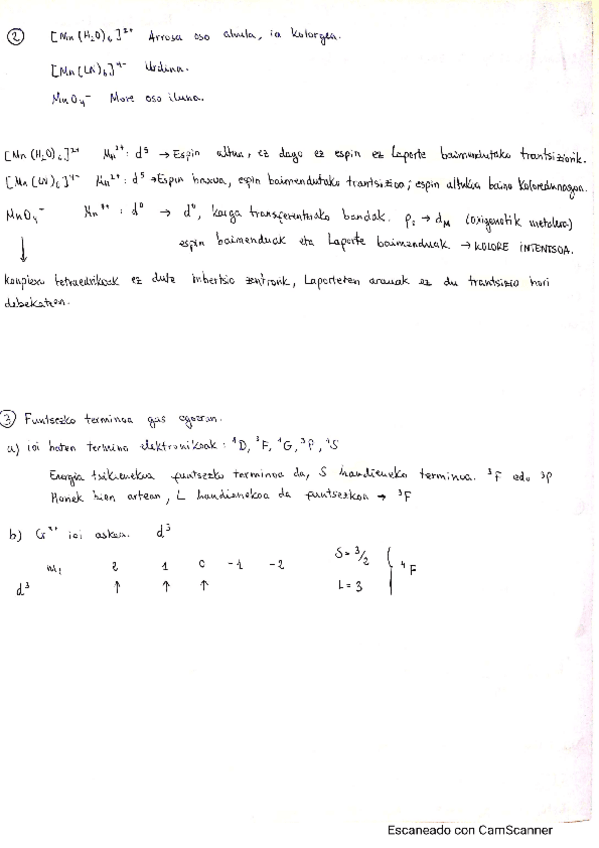 ② [Mn(H₂O)₆]²⁺ Arrosa oso ahula, ia kolorgea.
[Mn(CN)₆]⁴⁻ Urdina.
MnO₄⁻ More oso iluna.
[Mn(H₂O)₆]²⁺ Mn²⁺: d⁵ → Espin altua, ez dago ez espin ez Laporte baimendutako trantsiziorik.
[Mn(CN)₆]⁴⁻ Mn²⁺: d⁵ → Espin baxua, espin baimendutako trantsizioa; espin altukoa baino koloredunagoa.
MnO₄⁻ Mn⁷⁺: d⁰ → d⁰, karga transferentziako bandak. → d_M (oxigenotik metalera)
espin baimenduak eta Laporte baimenduak. → KOLORE INTENTSOA.
↓
konplexu tetraedrikoak ez dute inbertsio zentrorik, Laporteren arauak ez du trantsizio hori
debekatzen.
③ Funtsezko terminoa gas egoeran.
a) ioi baten termino elektronikoak: ¹D, ³F, ¹G, ³P, ¹S
Energia txikienekoa funtsezko terminoa da, S handieneko terminoa. ³F edo ³P
Honek bien artean, L handienekoa da funtsezkoa → ³F
b) Cr³⁺ ioi askea. d³
mₗ 2 1 0 -1 -2 S = 3/2
d³ ↑ ↑ ↑ L = 3 ⁴F
Escaneado con CamScanner